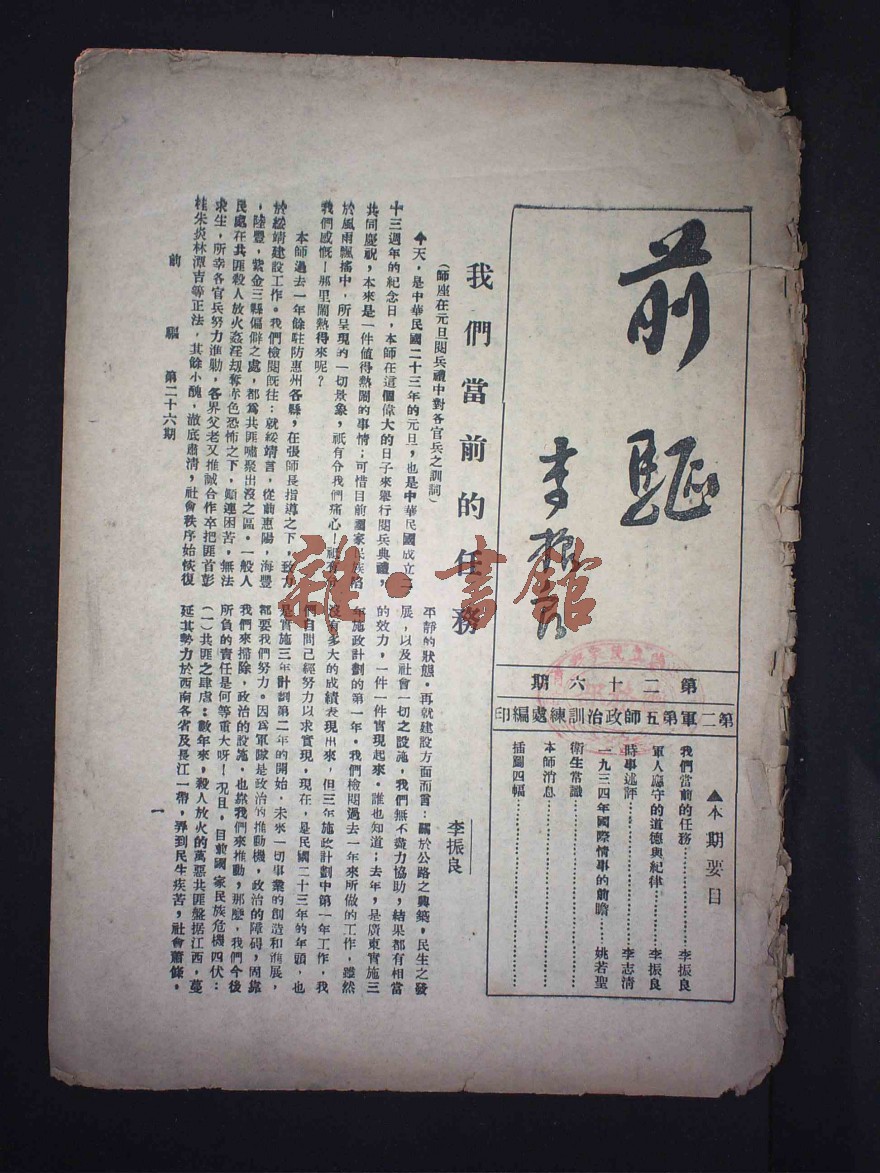 前驅
李振良
第二十六期
第二軍第五師政治訓練處編印
▲本期要目
我們當前的任務…………李振良
軍人應守的道德與紀律…………李振良
時事述評…………李志清
一九三四年國際情事的前瞻…………姚若聖
衛生常識…………
本師消息…………
插圖四幅…………
我們當前的任務
李振良
(師座在元旦閱兵禮中對各官兵之訓詞)
今天,是中華民國二十三年的元旦,也是中華民國成立二
十三週年的紀念日,本師在這個偉大的日子來舉行閱兵典禮,
共同慶祝,本來是一件值得熱鬧的事情;可惜目前國家民族陷
於風雨飄搖中,所呈現的一切景象,祇有令我們痛心!祇有令
我們感慨!那里鬧熱得來呢?
本師過去一年餘駐防惠州各縣,在張師長指導之下,致力
於綏靖建設工作。我們檢閱既往:就綏靖言,從前惠陽,海豐
,陸豐,紫金三縣偏僻之處,都爲共匪嘯聚出沒之區。一般人
民處在共匪殺人放火姦淫刼奪赤色恐怖之下,顛連困苦,無法
求生,所幸各官兵努力進勦,各界父老又推誠合作卒把匪首彭
桂朱炎林潭吉等正法,其餘小醜,澈底肅清,社會秩序始恢復
平靜的狀態。再就建設方面而言:關於公路之興築,民生之發
展,以及社會一切之設施,我們無不盡力協助,結果都有相當
的效力,一件一件實現起來。誰也知道;去年,是廣東實施三
年施政計劃的第一年。我們檢閱過去一年來所做的工作,雖然
沒有多大的成績表現出來,但三年施政計劃中第一年工作,我
們自問已經努力以求實現,現在,是民國二十三年的年頭,也
是實施三年計劃第二年的開始,未來一切事業的創造和進展,
都要我們努力。因爲軍隊是政治的推動機,政治的障碍,固靠
我們來掃除,政治的設施,也靠我們來推動,那麽,我們今後
所負的責任是何等重大呀!况且,目前國家民族危機四伏:
(一)共匪之肆虐:數年來,殺人放火的萬惡共匪盤据江西,蔓
延其勢力於西南各省及長江一帶,弄到民生疾苦,社會蕭條。
前驅 第二十六期
一
雜·書館